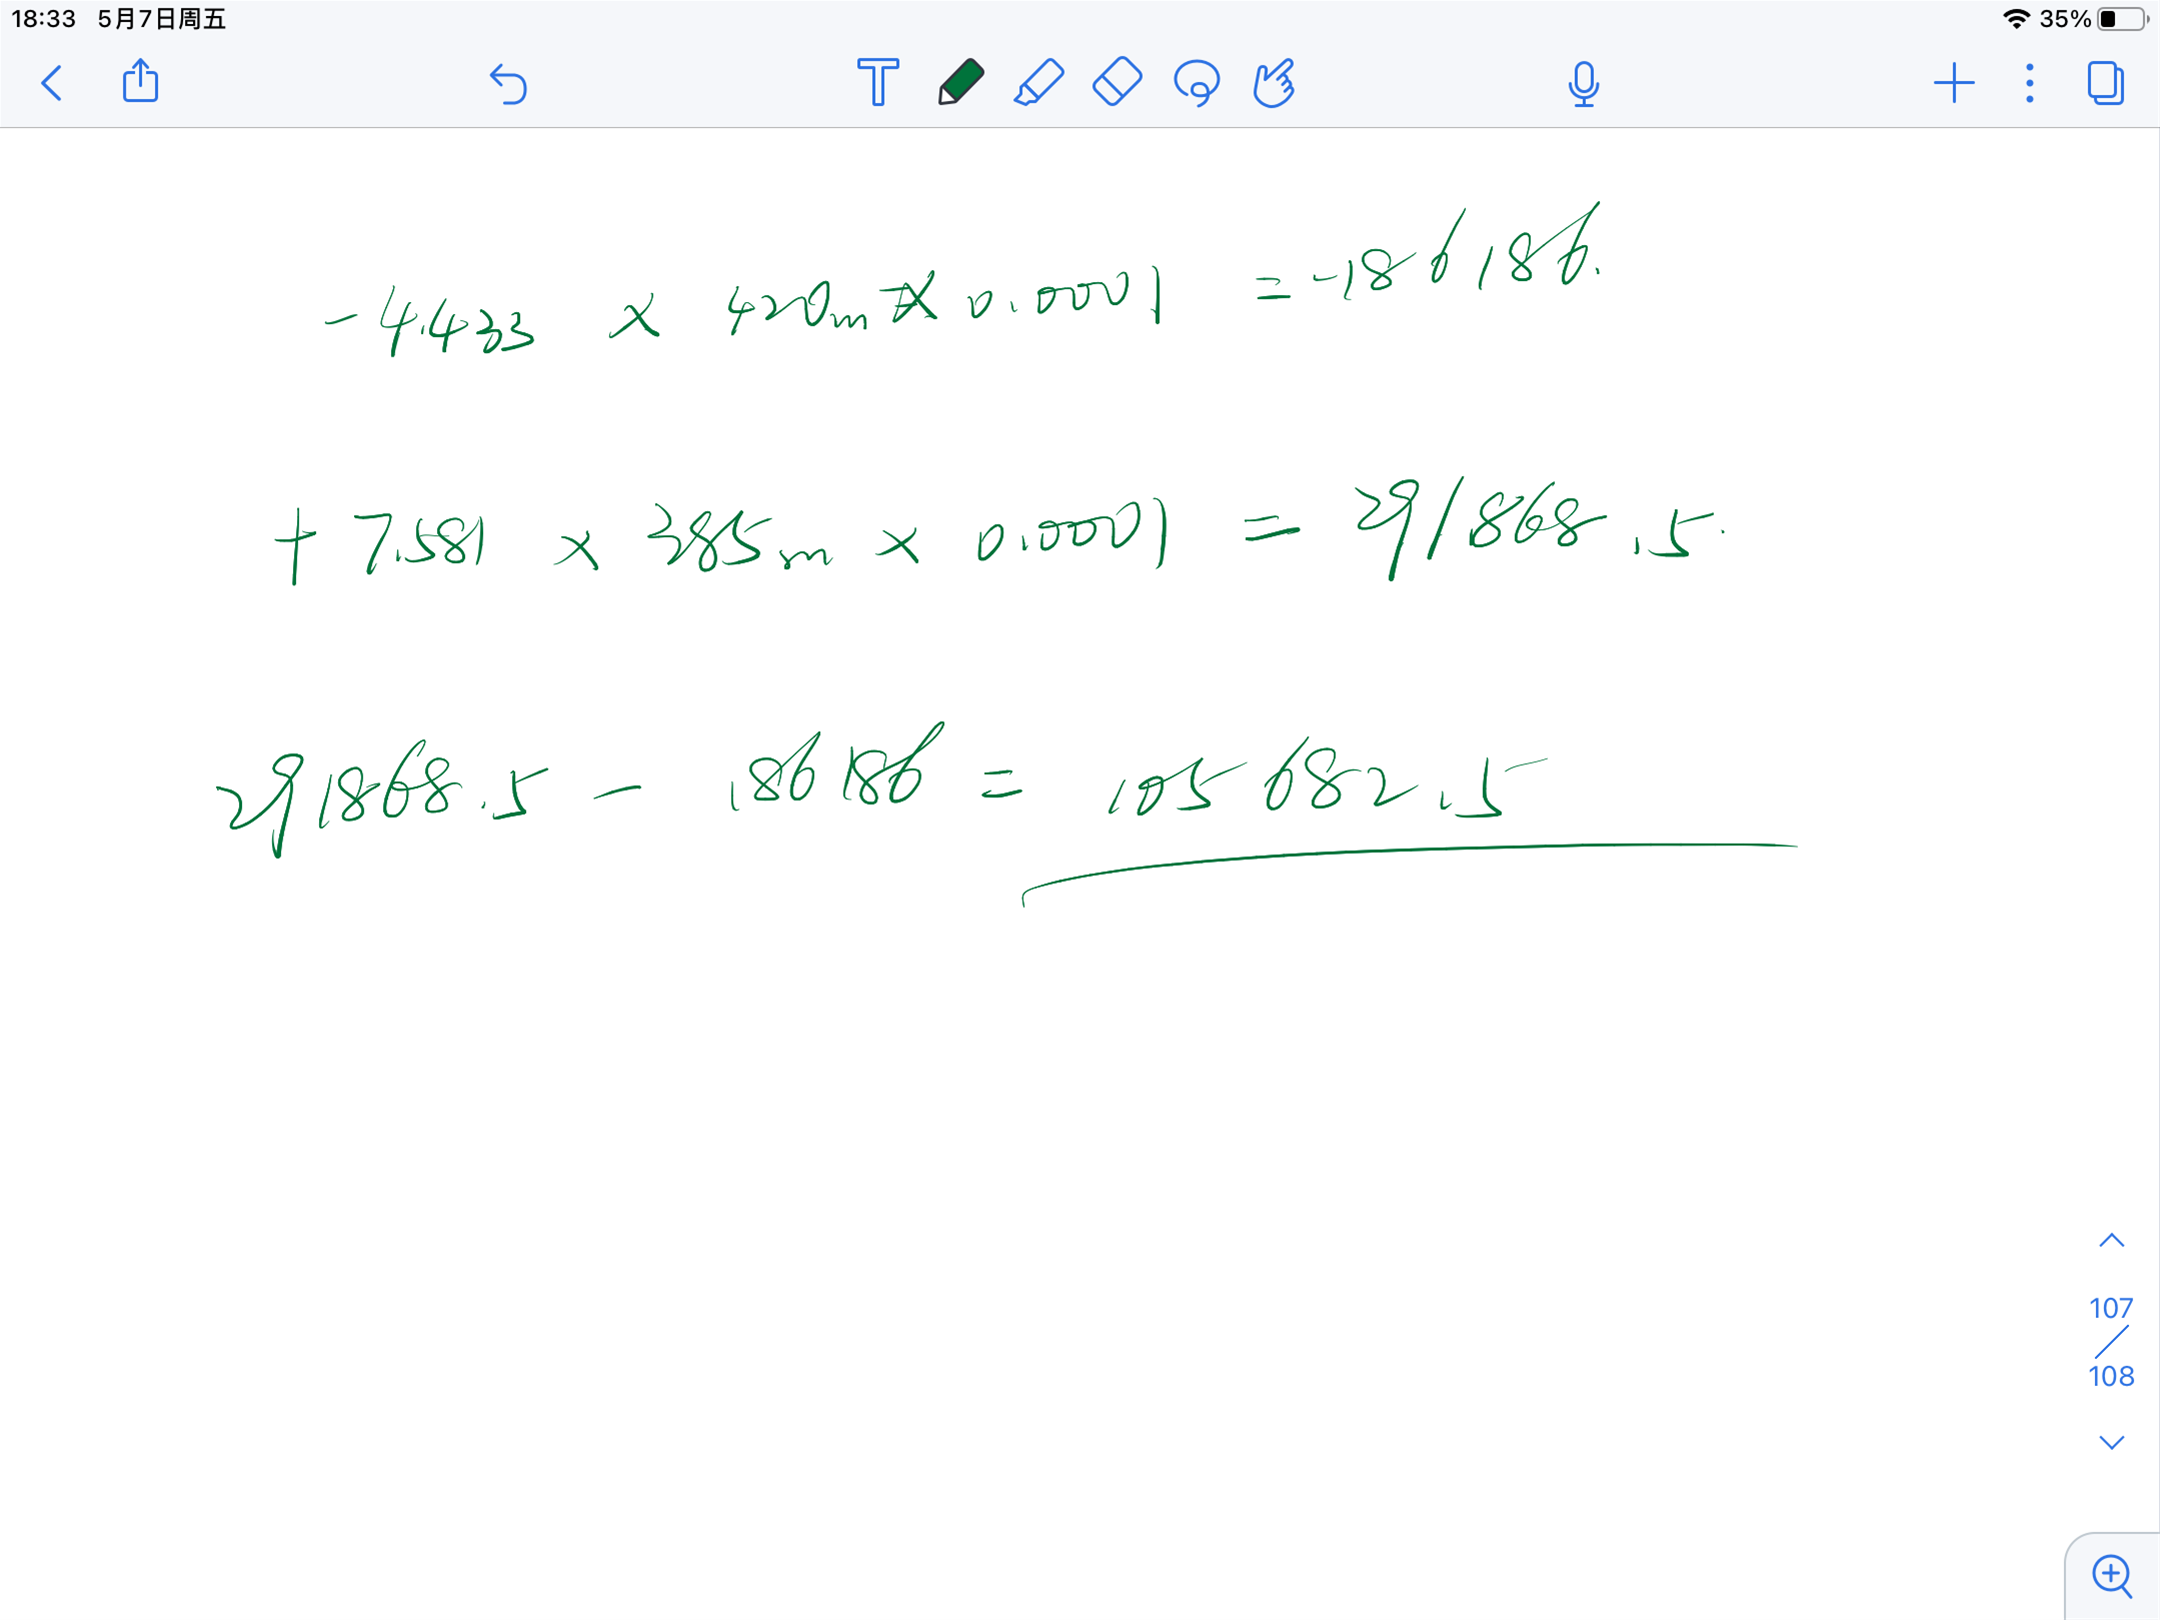 18:33 5月7日周五 35%
T
-4.433 × 420m × 0.0001 = -186186.
+ 7.581 × 385m × 0.0001 = 291868.5.
291868.5 - 186186 = 105682.5
107
108